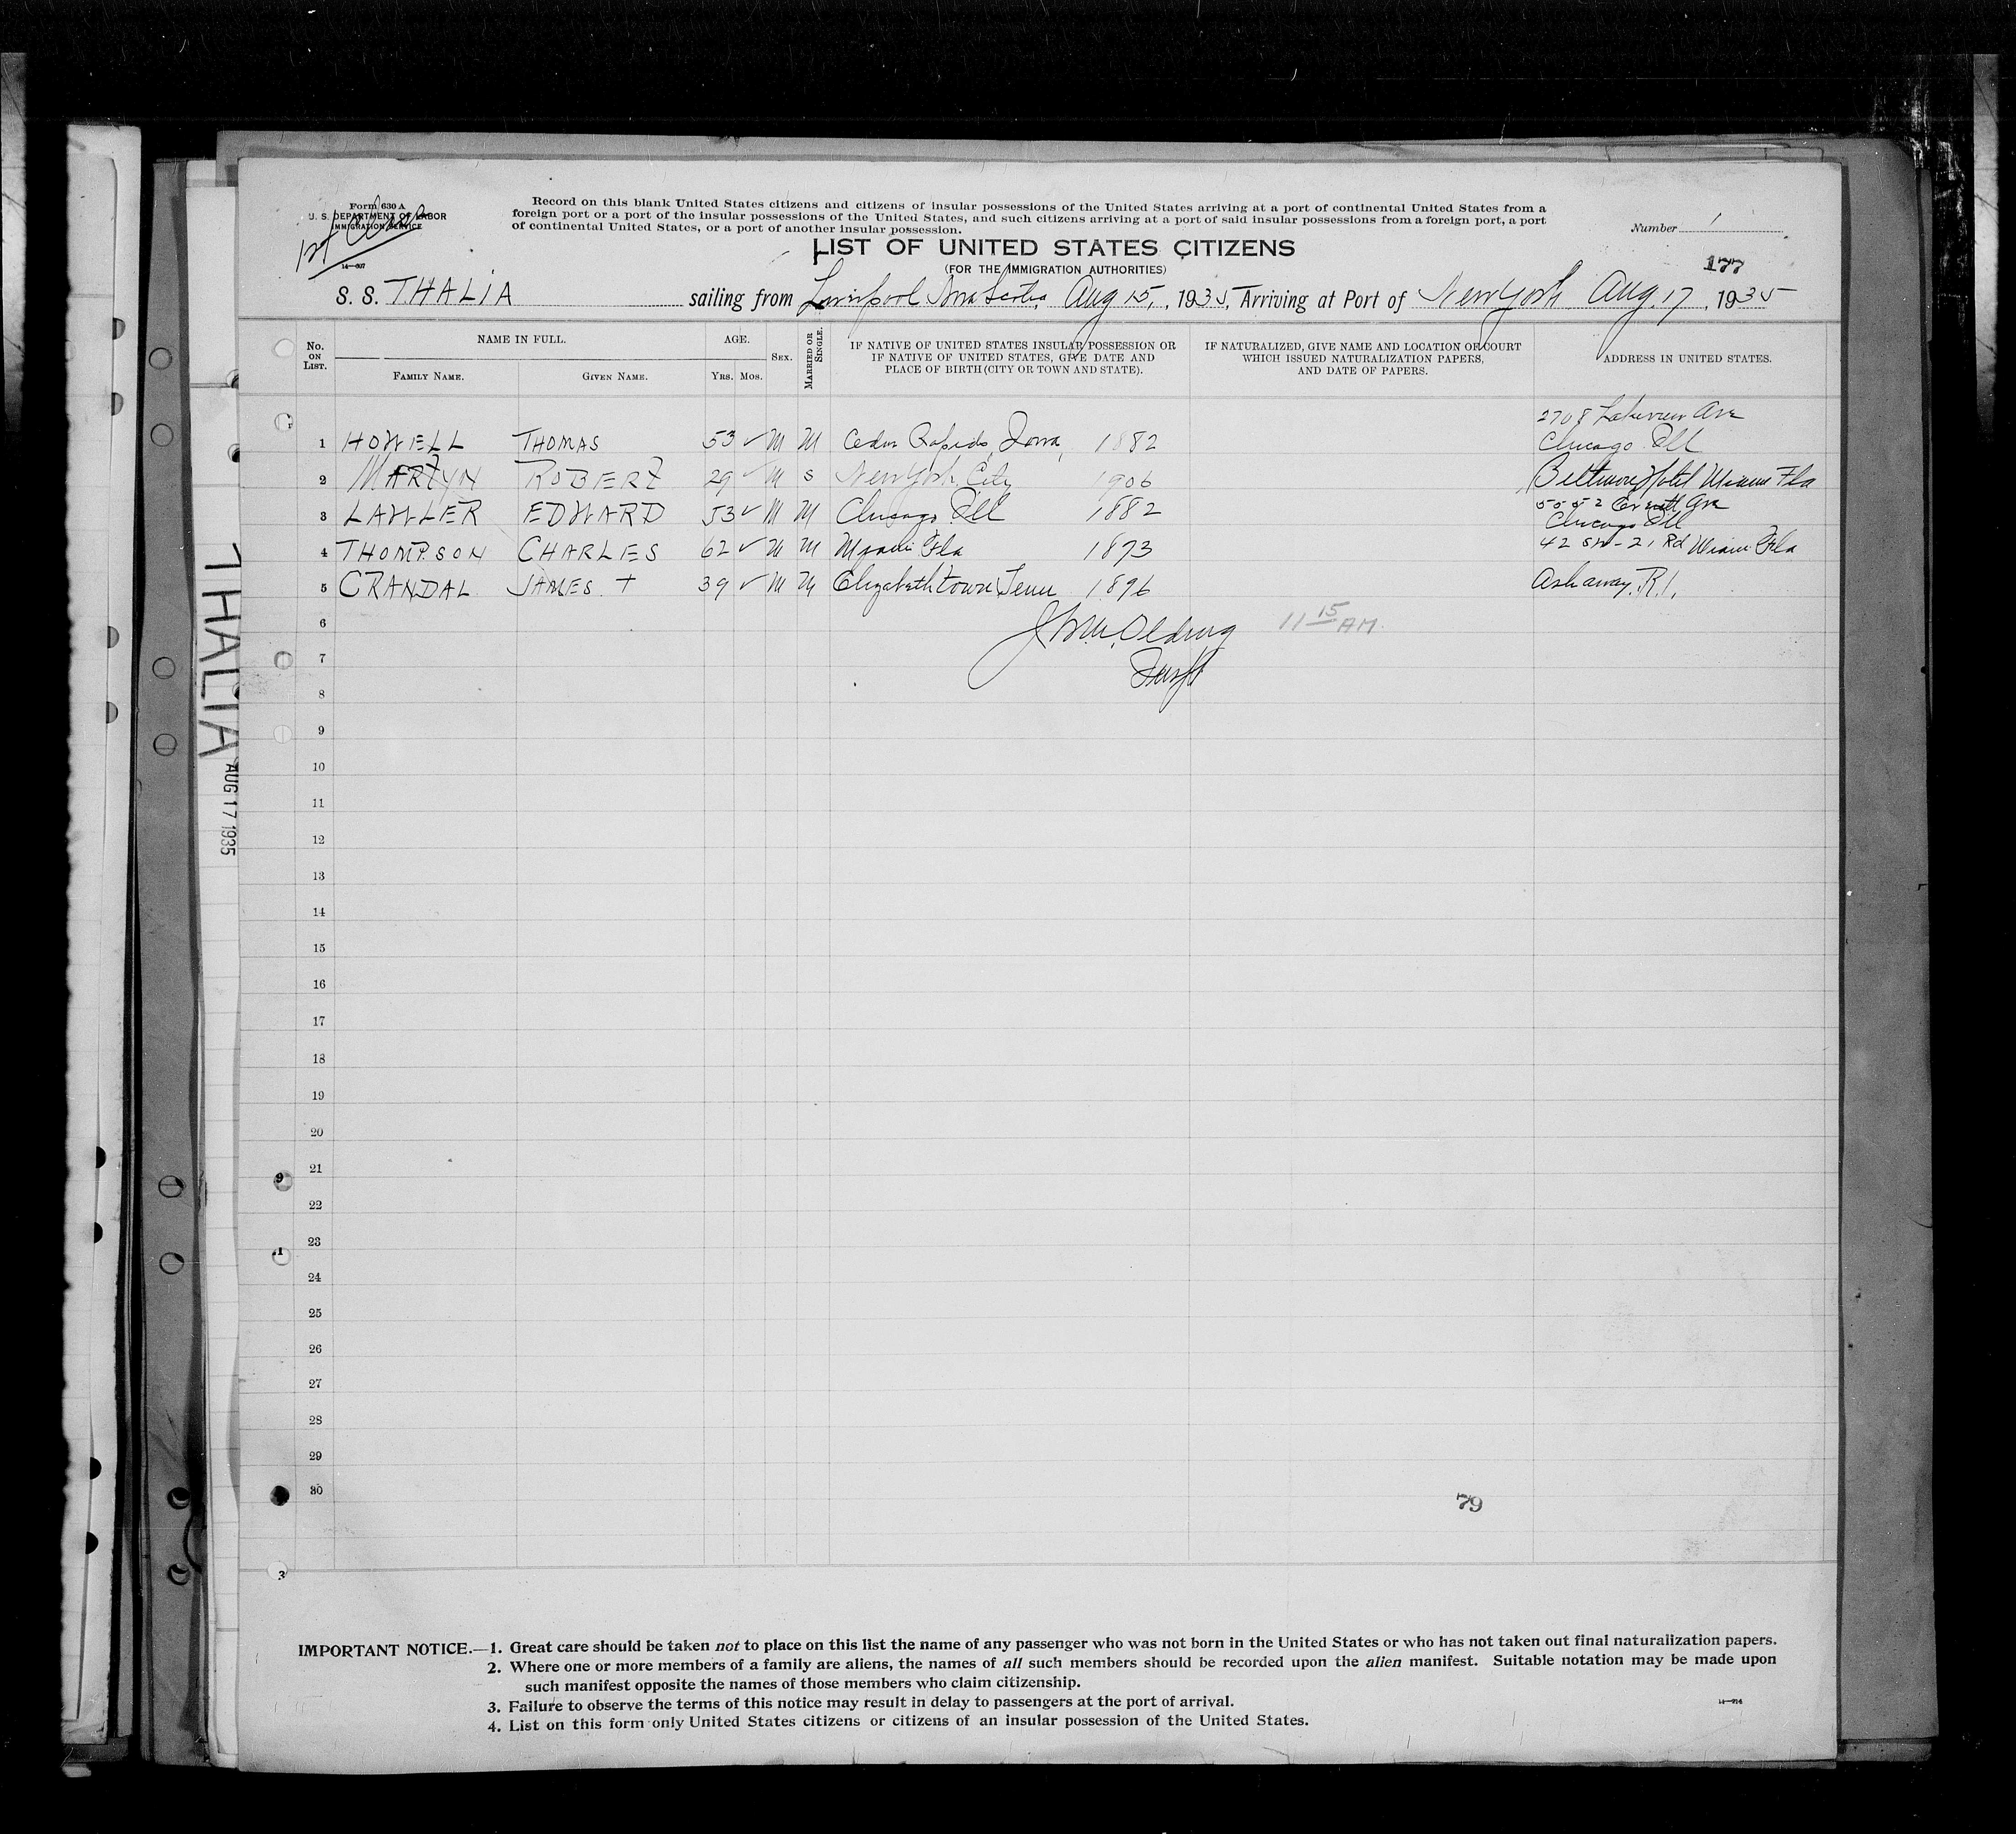 Form 630 A
U. S. DEPARTMENT OF LABOR
IMMIGRATION SERVICE
1st Class
14—607
Record on this blank United States citizens and citizens of insular possessions of the United States arriving at a port of continental United States from a
foreign port or a port of the insular possessions of the United States, and such citizens arriving at a port of said insular possessions from a foreign port, a port
of continental United States, or a port of another insular possession.
Number 1
LIST OF UNITED STATES CITIZENS
(FOR THE IMMIGRATION AUTHORITIES)
177
S. S. THALIA sailing from Liverpool Nova Scotia, Aug 15, 1935, Arriving at Port of New York Aug 17, 1935
No. ON LIST.
NAME IN FULL.
FAMILY NAME.
GIVEN NAME.
AGE.
YRS. MOS.
SEX.
MARRIED OR SINGLE.
IF NATIVE OF UNITED STATES INSULAR POSSESSION OR
IF NATIVE OF UNITED STATES, GIVE DATE AND
PLACE OF BIRTH (CITY OR TOWN AND STATE).
IF NATURALIZED, GIVE NAME AND LOCATION OF COURT
WHICH ISSUED NATURALIZATION PAPERS,
AND DATE OF PAPERS.
ADDRESS IN UNITED STATES.
2708 Lakeview Ave
1 HOWELL THOMAS 53 ✓ M M Cedar Rapids, Iowa, 1882 Chicago Ill
2 MARTYN ROBERT 29 ✓ M S New York City 1906 Biltmore Hotel Miami Fla
5552 Everett Ave
3 LAWLER EDWARD 53 ✓ M M Chicago Ill 1882 Chicago Ill
4 THOMPSON CHARLES 62 ✓ M M Miami Fla 1873 42 SW-21 Rd Miami Fla
5 CRANDAL JAMES + 39 ✓ M M Elizabethtown Tenn 1896 Ashaway, R.I.
6 11 15 AM.
7
8
9
10
11
12
13
14
15
16
17
18
19
20
21
22
23
24
25
26
27
28
29
30
79
THALIA AUG 17 1935
IMPORTANT NOTICE.—1. Great care should be taken not to place on this list the name of any passenger who was not born in the United States or who has not taken out final naturalization papers.
2. Where one or more members of a family are aliens, the names of all such members should be recorded upon the alien manifest. Suitable notation may be made upon
such manifest opposite the names of those members who claim citizenship.
3. Failure to observe the terms of this notice may result in delay to passengers at the port of arrival.
4. List on this form only United States citizens or citizens of an insular possession of the United States.